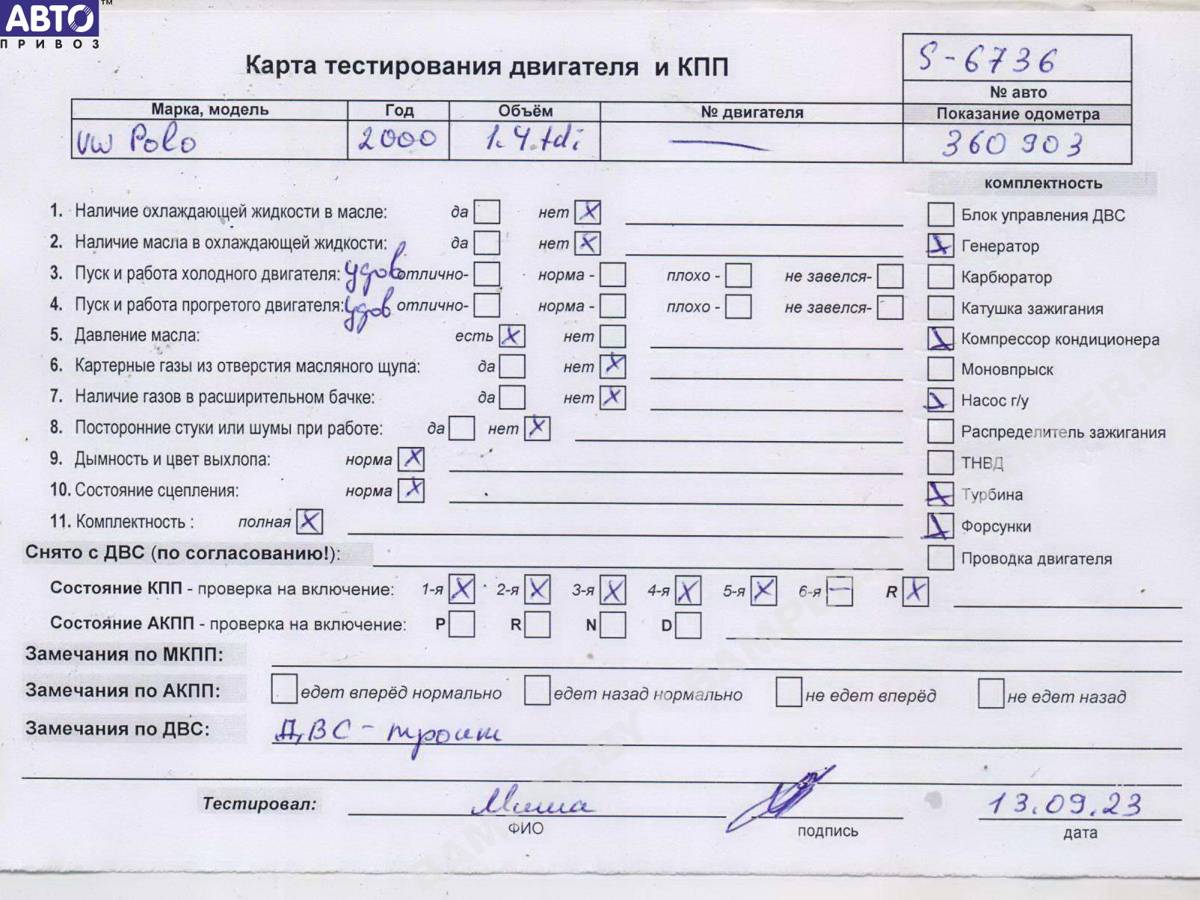 АВТО™
ПРИВОЗ
S-6736
Карта тестирования двигателя и КПП
№ авто
Марка, модель Год Объём № двигателя Показание одометра
VW Polo 2000 1.4.tdi — 360 903
комплектность
1. Наличие охлаждающей жидкости в масле: да нет X
Блок управления ДВС
2. Наличие масла в охлаждающей жидкости: да нет X
X Генератор
3. Пуск и работа холодного двигателя: удов отлично- норма - плохо - не завелся-
Карбюратор
4. Пуск и работа прогретого двигателя: удов отлично- норма - плохо - не завелся-
Катушка зажигания
5. Давление масла: есть X нет
X Компрессор кондиционера
6. Картерные газы из отверстия масляного щупа: да нет X
Моновпрыск
7. Наличие газов в расширительном бачке: да нет X
X Насос г/у
8. Посторонние стуки или шумы при работе: да нет X
Распределитель зажигания
9. Дымность и цвет выхлопа: норма X
ТНВД
10. Состояние сцепления: норма X
X Турбина
11. Комплектность : полная X
X Форсунки
Снято с ДВС (по согласованию!):
Проводка двигателя
Состояние КПП - проверка на включение: 1-я X 2-я X 3-я X 4-я X 5-я X 6-я — R X
Состояние АКПП - проверка на включение: P R N D
Замечания по МКПП:
Замечания по АКПП: едет вперёд нормально едет назад нормально не едет вперёд не едет назад
Замечания по ДВС: ДВС - троит
Тестировал: Миша 13.09.23
ФИО подпись дата
BAMPER.BY